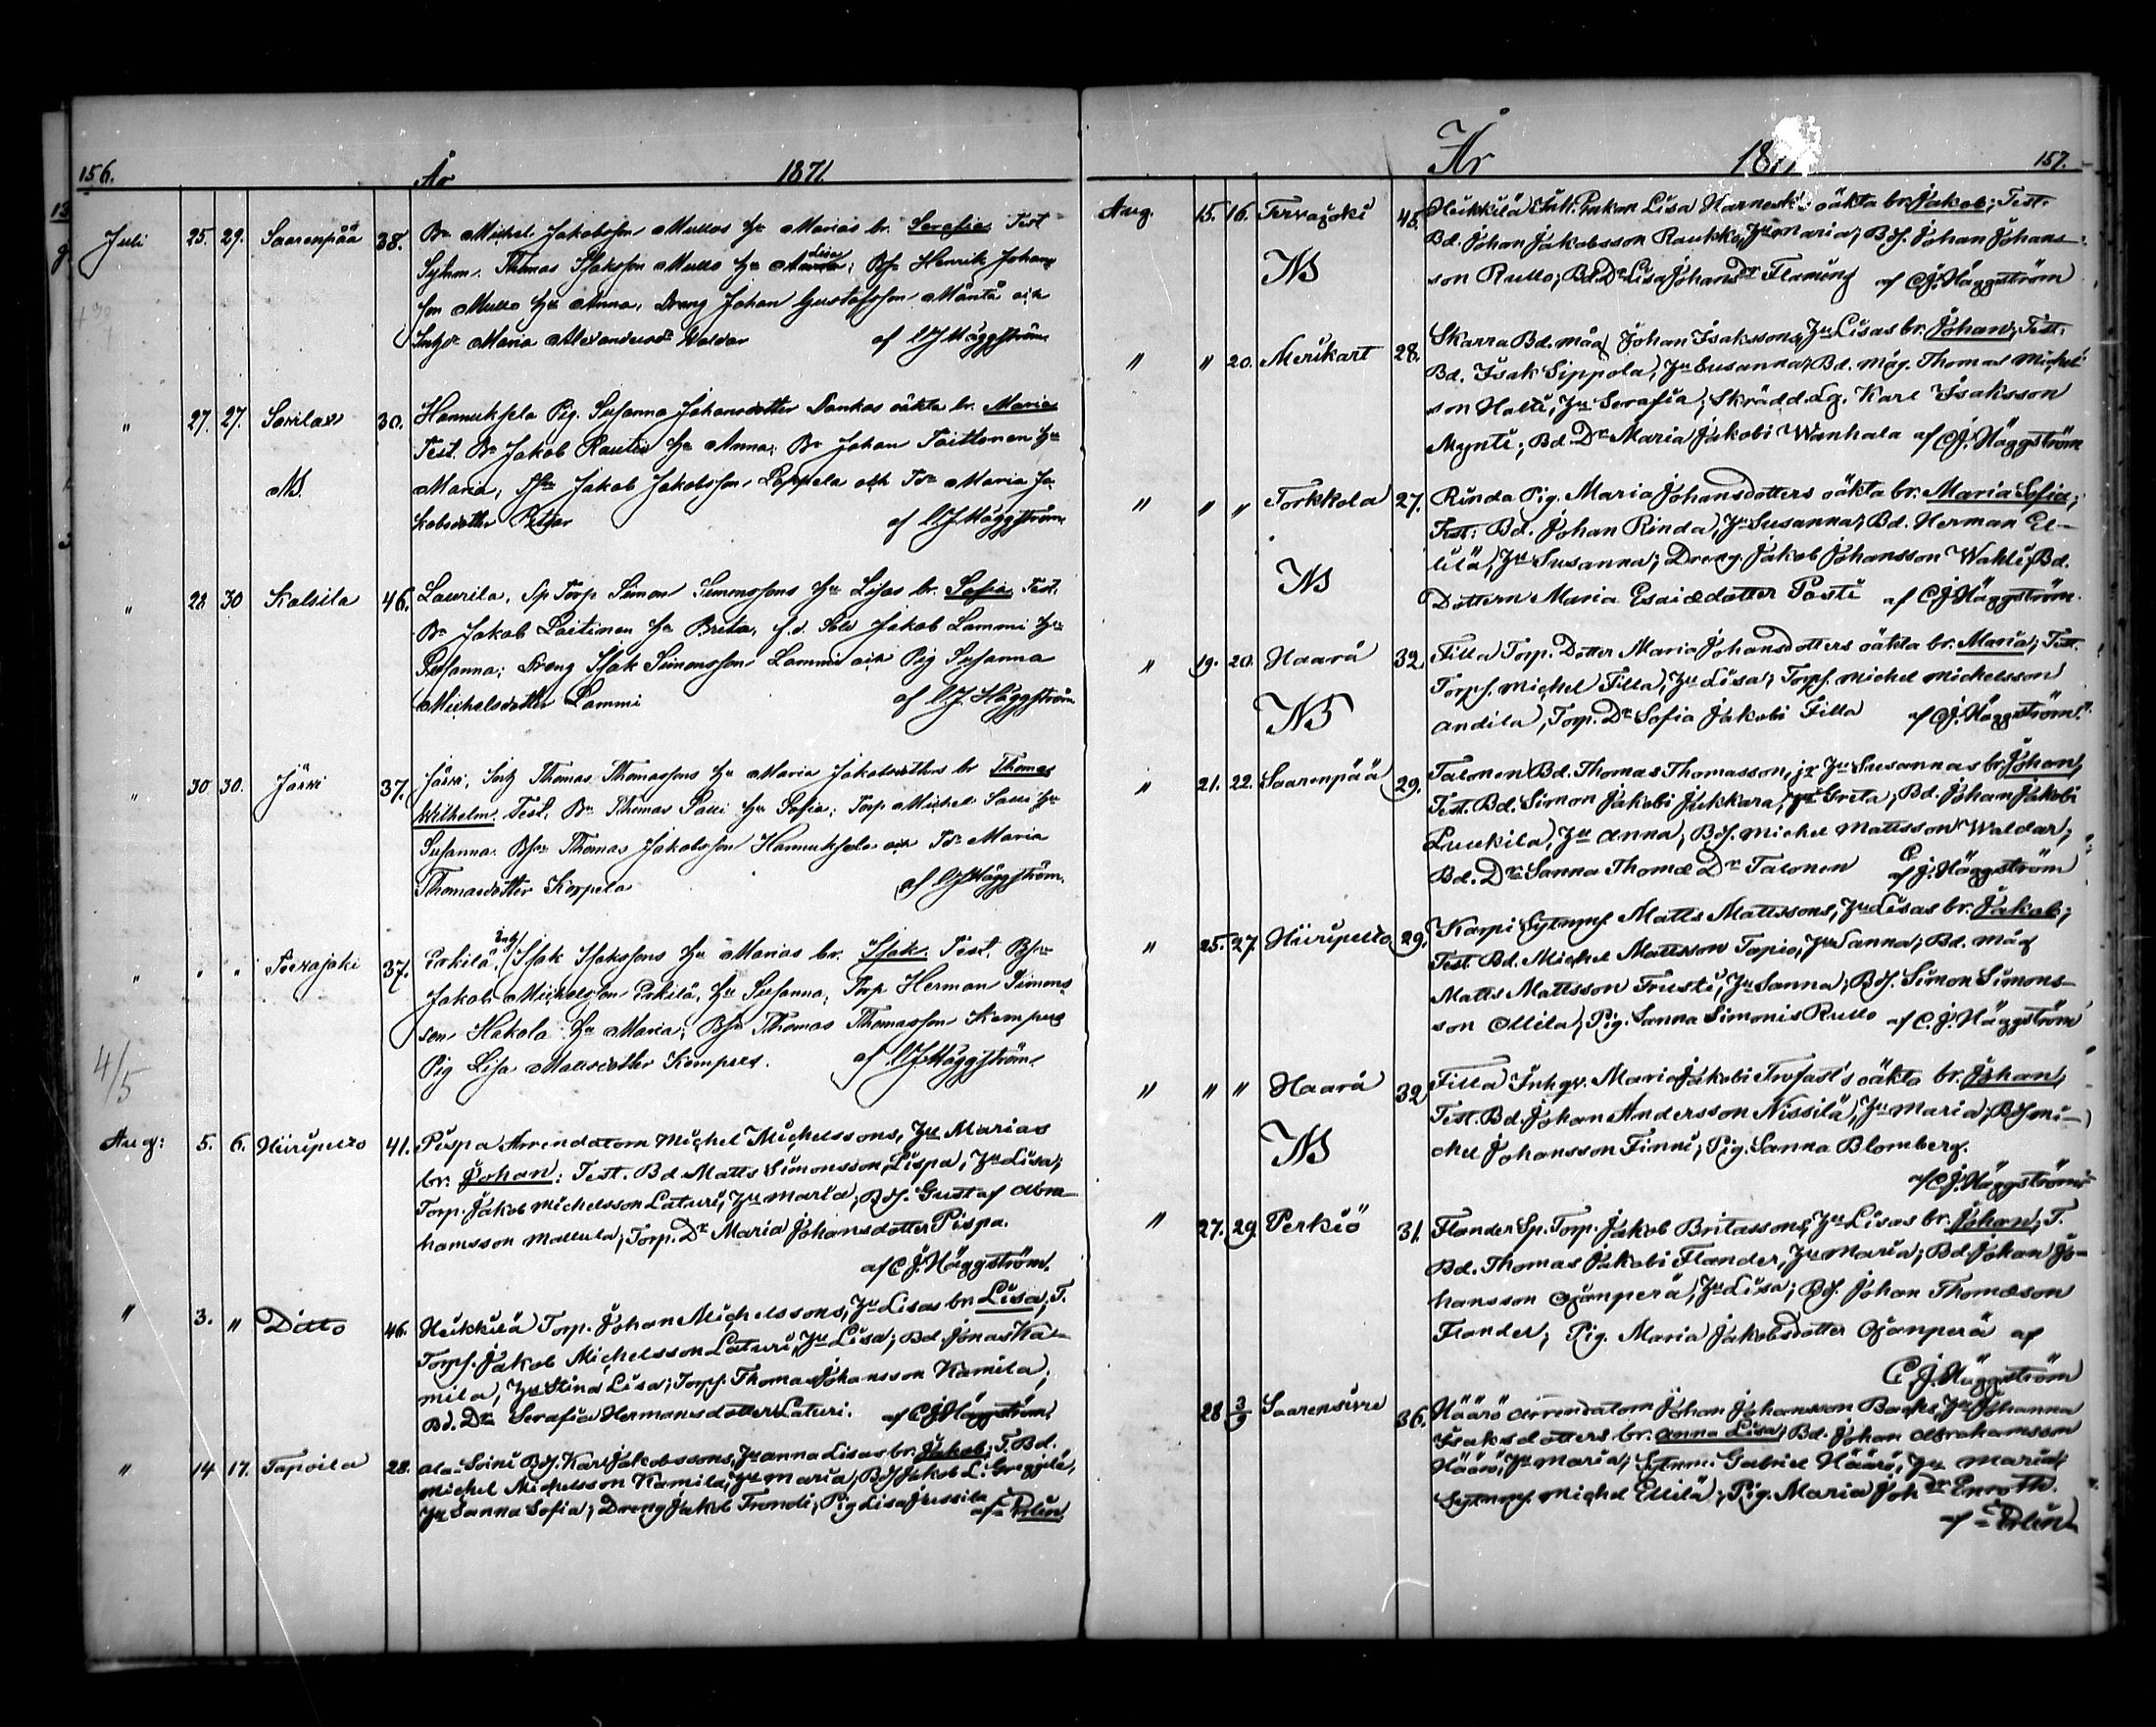 156.
År 1871.
Juli 25. 29. Saarenpää 38. Br Michel Jakobsson Mullos hu Marias br. Serafia Test
Sytnm. Thomas Isaksson Mullo hu Lisa; Bs Henrik Johans
son Mullo hu Anna, Dreng Johan Gustafsson Mäntä och
Maria Alexandersdr Waldar af C J Häggström
" 27. 27. Sorila 30. Hannuksela Pig. Susanna Johansdotter oäkta br. Maria
Test. Br Jakob Rautio hu Anna; Br Johan Toittonen hu
NB. Maria; Jakob Jakobsson Loppela och Maria Ja
kobsdotter af C J Häggström
" 28 30 Kalsila 46. Laurila, Sp Torp Simon Simonssons hu Lisas br. Sofia Test.
Br Jakob Laitinen hu Breta, f.d. Sold Jakob Lammi hu
Susanna; Dreng Isak Simonsson Lammi och Pig Susanna
Michelsdotter Lammi af C. J. Häggström
" 30 30. Järvi 37. Järvi, Inh Thomas Thomassons hu Maria Jakobsdotters br Thomas
Wilhelm. Test. Br Thomas Salli hu Sofia; Torp Michel Salli hu
Susanna. Bsn Thomas Jakobsson Hannuksela och Maria
Thomasdotter Korpela af C J Häggström.
" " " Tervajoki 37. Erkilä, Inh Isak Isakssons hu Marias br. Isak. Test. Bsn
Jakob Michelsson Erkilä, hu Susanna, Torp Herman Simons
son Hakola hu Maria; Bsn Thomas Thomasson Kempas
Pig Lisa Mattsdotter Kempas. af C J Häggström.
4/5
Aug: 5. 6. Hiiripelto 41. Pispa Arrendatorn Michel Michelssons, Hu Marias
br. Johan; Test. Bd Matts Simonsson Pispa, Hu Lisa;
Torp. Jakob Michelsson Laturi, Hu Maria; BdS. Gustaf Abra-
hamsson Mallula; Torp. Dr Maria Johansdotter Pispa.
af C J. Häggström.
" 3. " Ditto 46. Heikkilä Torp. Johan Michelssons, Hu Lisas br Lisa; T.
Torps. Jakob Michelsson Laturi, Hu Lisa; Bd. Jonas Ka-
mila, Hu Stina Lisa; Torps. Thomas Johansson Kamila;
Bd. Dr. Serafia Hermansdotter Laturi. af C J Häggström.
" 14 17. Tapoila 28. Ala-Soini BdS. Karl Jakobssons, Hu Anna Lisas br. Jakob; T. Bd.
Michel Michelsson Kamila, Hu Maria; BdS Jakob L.
Hu Sanna Sofia; Dreng Jakob Trondi; Pig Lisa Jussila af Polén
År 187 157.
Aug. 15. 16. Tervajoki 45. Heikkilä Enkan Lisa oäkta br. Jakob; Test.
Bd. Johan Jakobsson Raukko, Hu Maria; BdS. Johan Johans-
NB son Rullo; Bd. Dr Lisa Johans Dr Flaming af C J. Häggström
" " 20. Merikart 28. Skarra Bd. måg Johan Isakssons, Hu Lisas br. Johan; Test.
Bd. Isak Sippola, Hu Susanna; Bd. måg. Thomas Michel
son Halti, Hu Serafia; Skrädd. Lg. Karl Isaksson
Mynti; Bd. Dr Maria Jakobi Wanhala af C J. Häggström
" " " Torkkola 27. Rinda Pig. Maria Johansdotters oäkta br. Maria Sofia;
Test. Bd. Johan Rinda, Hu Susanna; Bd. Herman El-
NB lilä, Hu Susanna; Dreng. Jakob Johansson Wahli, Bd.
Dottern Maria Esaiædotter Pasti af C J Häggström.
" 19. 20. Haarå 32. Filla Torp. Dotter Maria Johansdotters oäkta br. Maria; Test.
Torps. Michel Filla, Hu Lisa; Torps. Michel Michelsson
NB Andila, Torp. Dr Sofia Jakobi Filla af C J. Häggström.
" 21. 22. Saarenpää 29. Talonen Bd. Thomas Thomasson, jr Hu Susannas br Johan;
Test. Bd. Simon Jakobi Jukkara, Hu Greta; Bd. Johan Jakobi
Luukila, Hu Anna; BdS. Michel Mattsson Waldar;
Bd. Dr. Sanna Thomæ Dr Talonen af C J. Häggström
" 25. 27. Hiiripelto 29. Karpi Sytnings Matts Mattssons, Hu Lisas br. Jakob;
Test. Bd. Michel Mattsson Tapio, Hu Sanna; Bd. måg
Matts Mattsson Trusti, Hu Sanna; BdS. Simon Simons-
son Ollila; Pig. Sanna Simonis Rullo af C. J. Häggström
" " " Haarå 32 Filla Inhgr. Maria Jakobi Trofast's oäkta br. Johan;
Test. Bd. Johan Andersson Nissilä, Hu Maria; BdS Mi-
NB chel Johansson Finni; Pig. Sanna Blomberg.
af C. J. Häggström
" 27. 29. Perkiö 31. Flander Sp. Torp. Jakob Britassons, Hu Lisas br. Johan; T.
Bd. Thomas Jakobi Flander, Hu Maria; Bd. Johan Jo-
hansson Ojanperä, Hu Lisa; BdS. Johan Thomæson
Flander; Pig. Maria Jakobsdotter Ojanperä af
C J. Häggström
28 3/9 Saarensivu 36. Häärö Arrendatorn Johan Johansson Backs, Hu Johanna
Isaksdotters br. Anna Lisa; Bd. Johan Abrahamsson
Häärö, Hu Maria; Sytnm. Gabriel Häärö, Hu Maria;
Sytnings Michel Ellilä; Pig. Maria Joh Dr Enroth.
af Polén